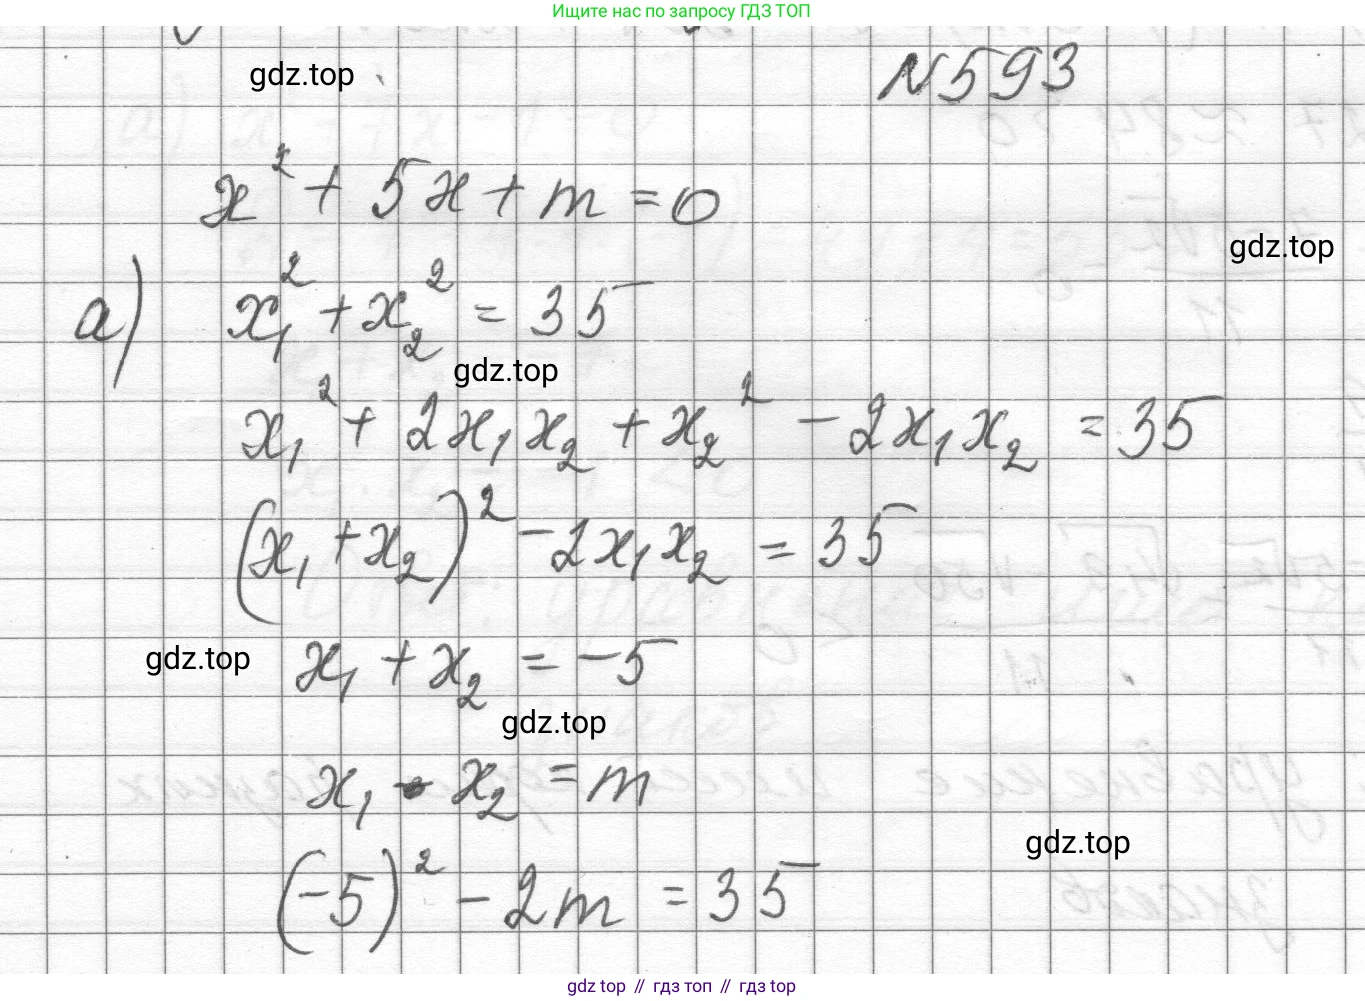 Ищите нас по запросу ГДЗ ТОП
gdz.top
N593
x² + 5x + m = 0
gdz.top
а) x₁² + x₂² = 35
gdz.top
x₁² + 2x₁x₂ + x₂² - 2x₁x₂ = 35
(x₁ + x₂)² - 2x₁x₂ = 35
gdz.top
x₁ + x₂ = -5
gdz.top
x₁ • x₂ = m
gdz.top
(-5)² - 2m = 35
gdz.top // гдз топ // gdz top